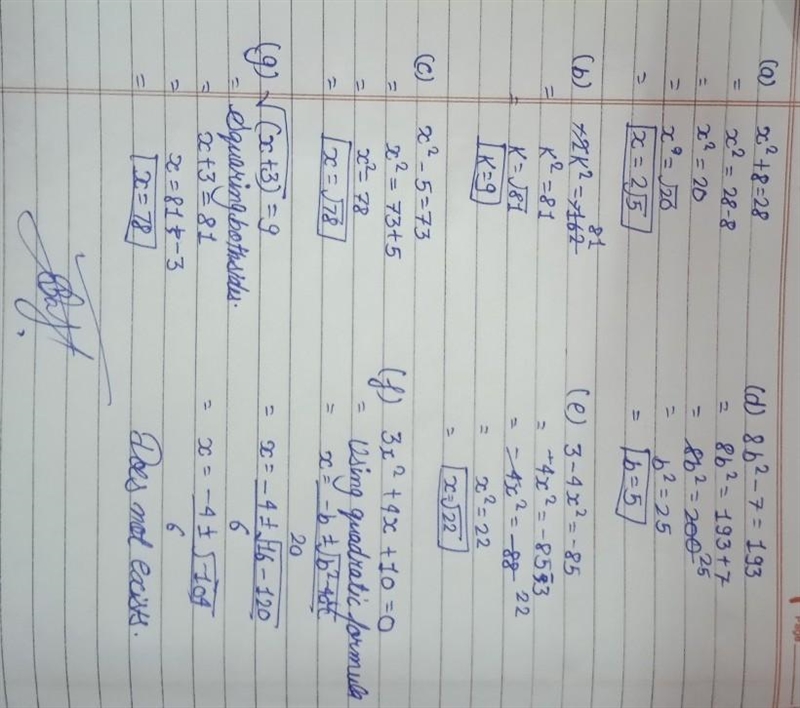 (a) x² + 8 = 28
= x² = 28 - 8
= x² = 20
= x² = √20
= x = 2√5
(b) +2k² = +162 81
= k² = 81
= k = √81
k = 9
(c) x² - 5 = 73
= x² = 73 + 5
= x² = 78
= x = √78
(g) √(x+3) = 9
= squaring both sides.
= x + 3 = 81
= x = 81 + - 3
= x = 78
(d) 8b² - 7 = 193
= 8b² = 193 + 7
= 8b² = 200 25
= b² = 25
= b = 5
(e) 3 - 4x² = -85
= +4x² = -85-3
= -4x² = -88 22
= x² = 22
= x = √22
(f) 3x² + 4x + 10 = 0
= Using quadratic formula
= x = -b ± √b² - 4ac
20
= x = -4 ± √16 - 120
6
= x = -4 ± √-104
6
Does not exists.
Page